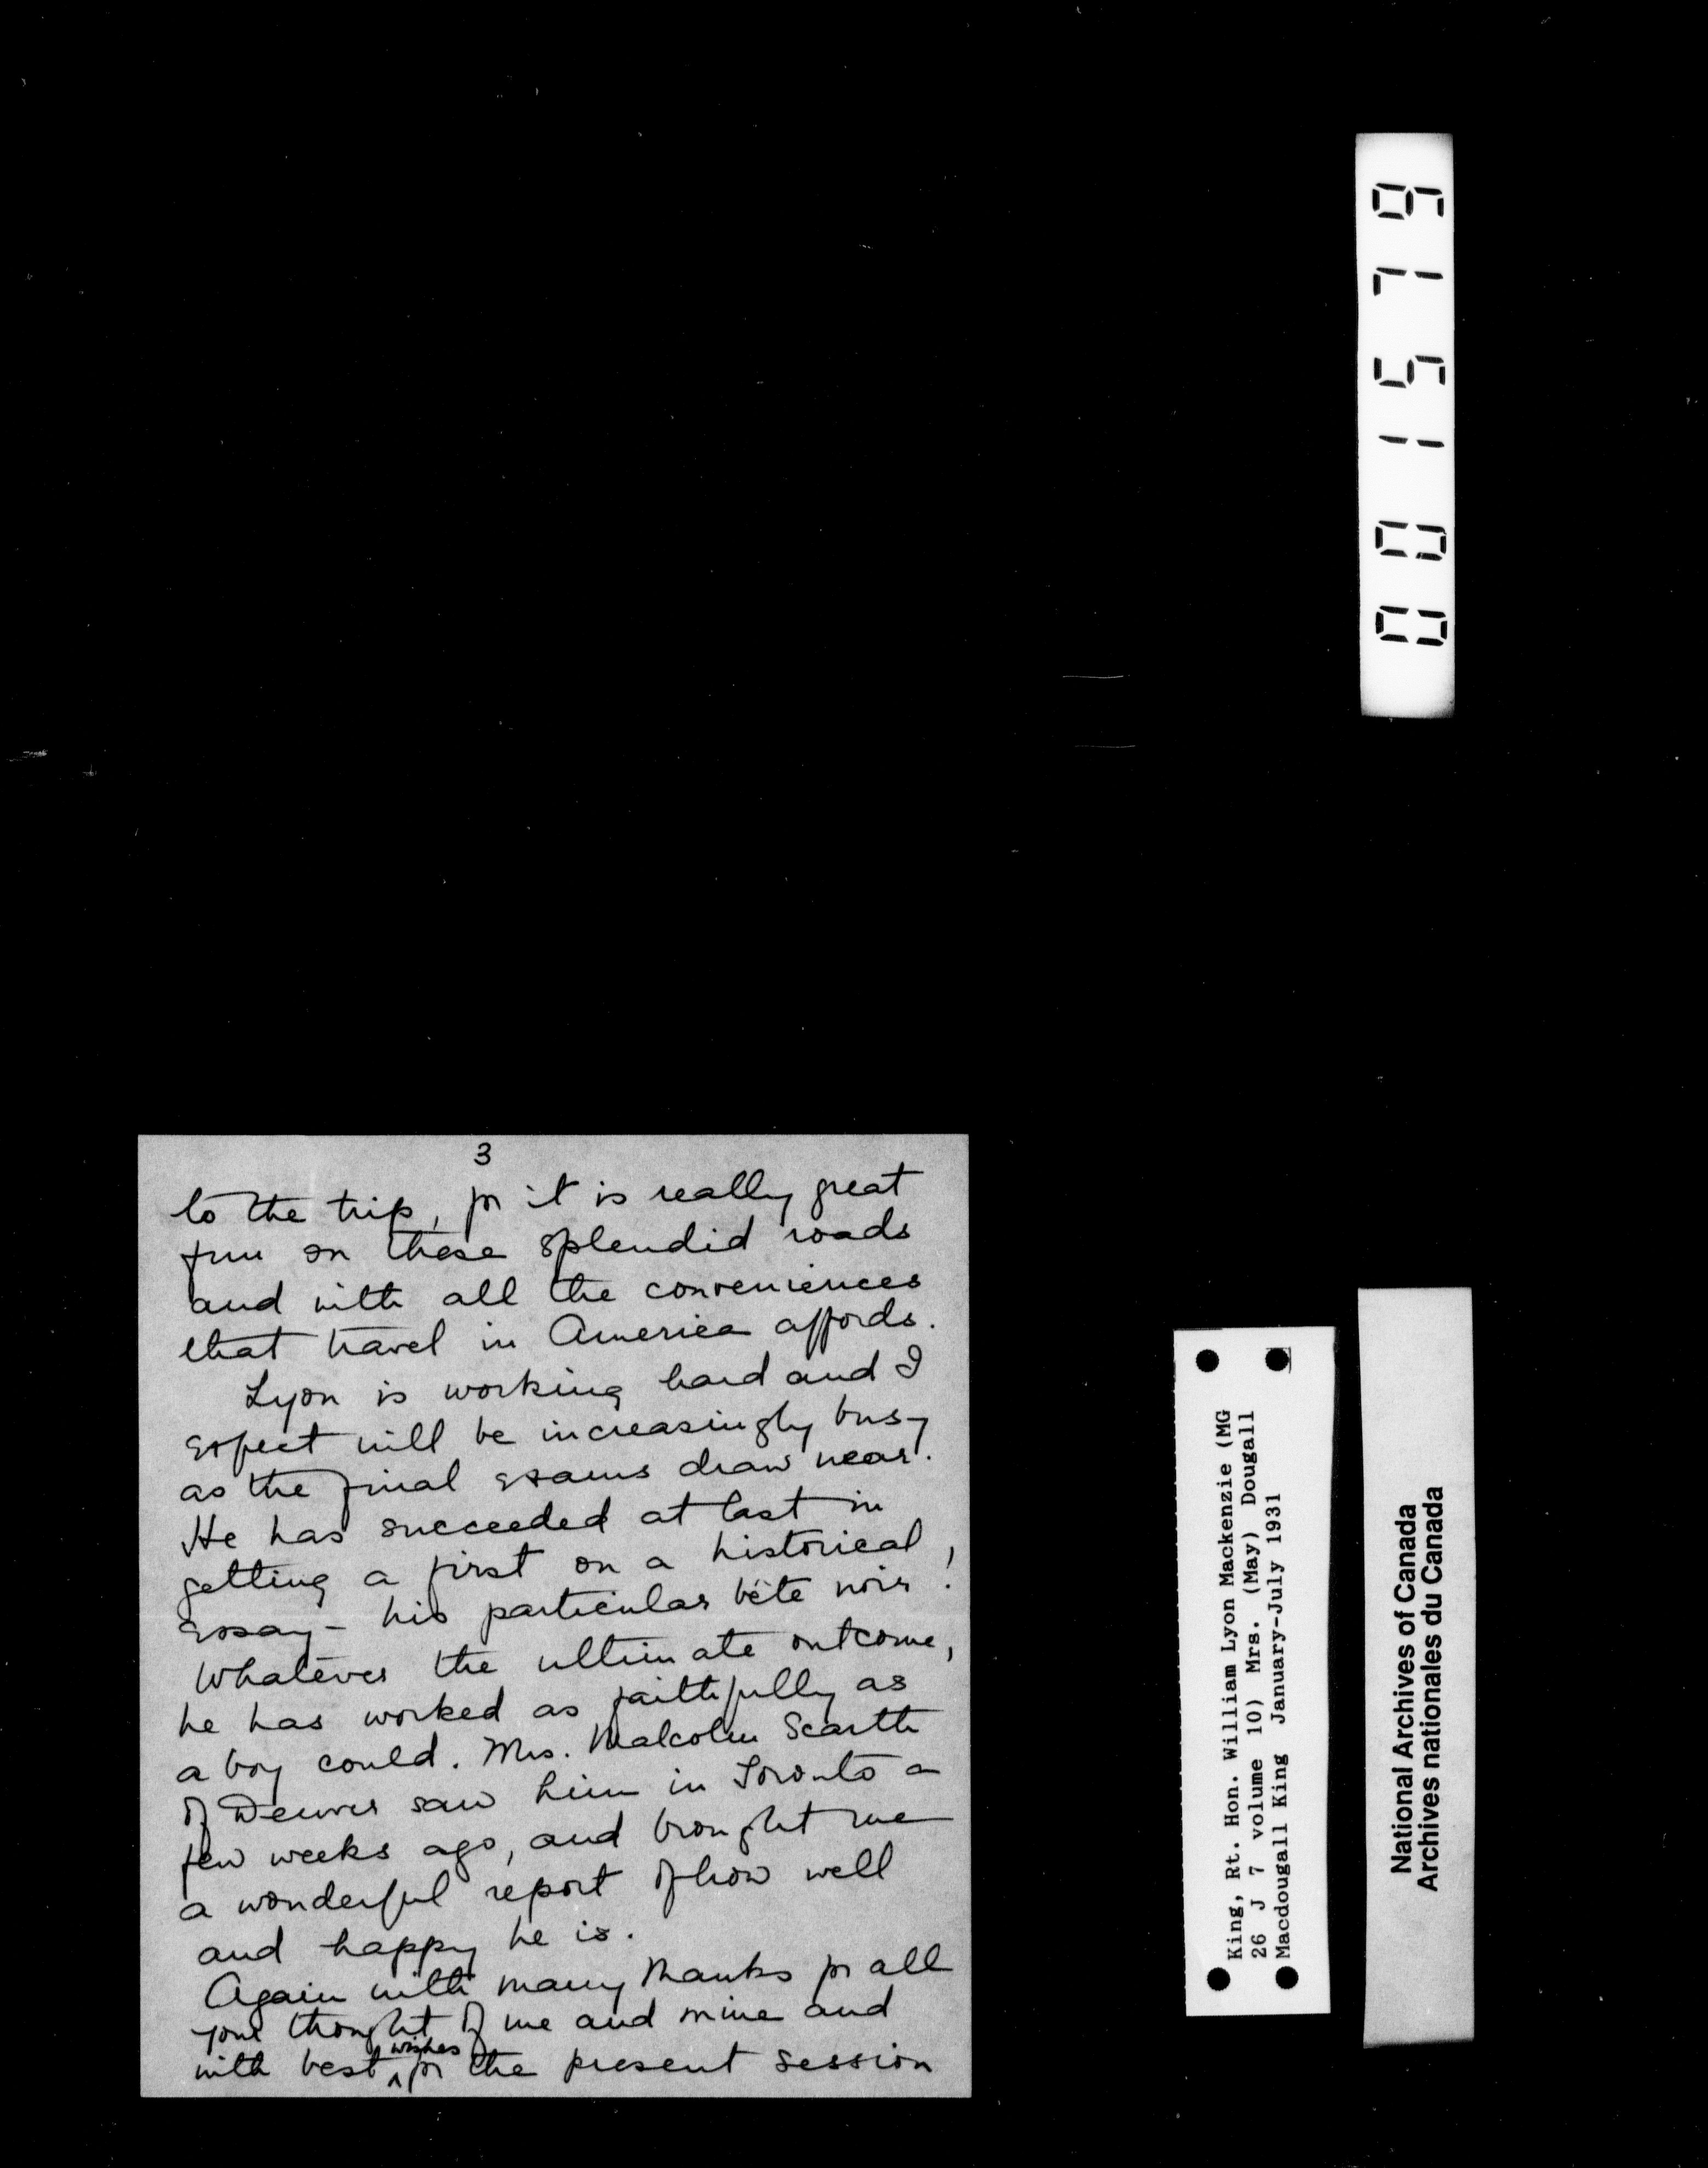 3
to the trip, for it is really great
fun on these splendid roads
and with all the conveniences
that travel in America affords.
Lyon is working hard and I
expect will be increasingly busy
as the final exams draw near.
He has succeeded at last in
getting a first on a historical
essay - his particular bête noir!
Whatever the ultimate outcome,
he has worked as faithfully as
a boy could. Mrs. Malcolm Scarth
of Denver saw him in Toronto a
few weeks ago, and brought me
a wonderful report of how well
and happy he is.
Again with many thanks for all
your thought of me and mine and
with best wishes for the present session
King, Rt. Hon. William Lyon Mackenzie (MG
26 J 7 volume 10) Mrs. (May) Dougall
Macdougall King January-July 1931
National Archives of Canada
Archives nationales du Canada
001579